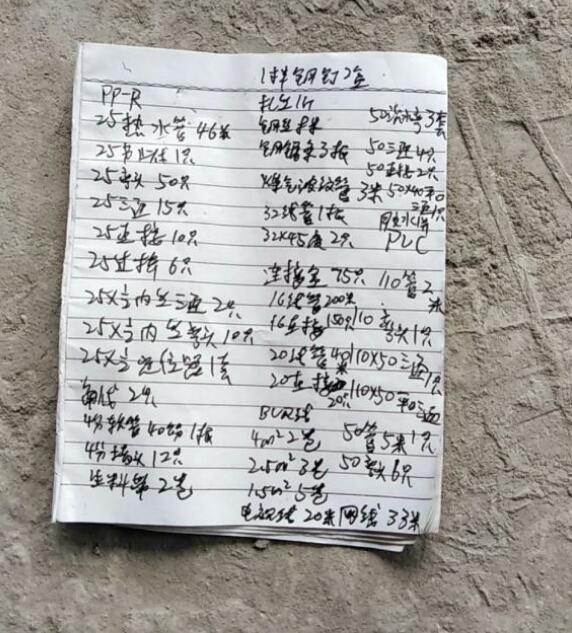 PP-R
25热水管46米
25 1只
25弯头50只
25三通15只
25直接10只
25过桥6只
25×½内丝三通2只
25×½内丝弯头10只
25×½定位器1套
角线2只
4分软管40 1根
4分接头12只
生料带2卷
1件钢钉2盒
扎丝1斤
钢丝
钢锯条3根
煤气波纹管3米
32线管1根
32×45度2只
连接盒75只
16线管200米
16直接150只
20线管40米
20直接20只
BVR线
4m² 2卷
2.5m² 3卷
1.5m² 5卷
电视线20米 网线33米
50 弯3套
50三通4只
50直接2只
50×40平三通1只
胶水1
PVC
110管2米
110弯头1只
110×50三通1只
110×50平三通
50管5米 1只
50弯头6只